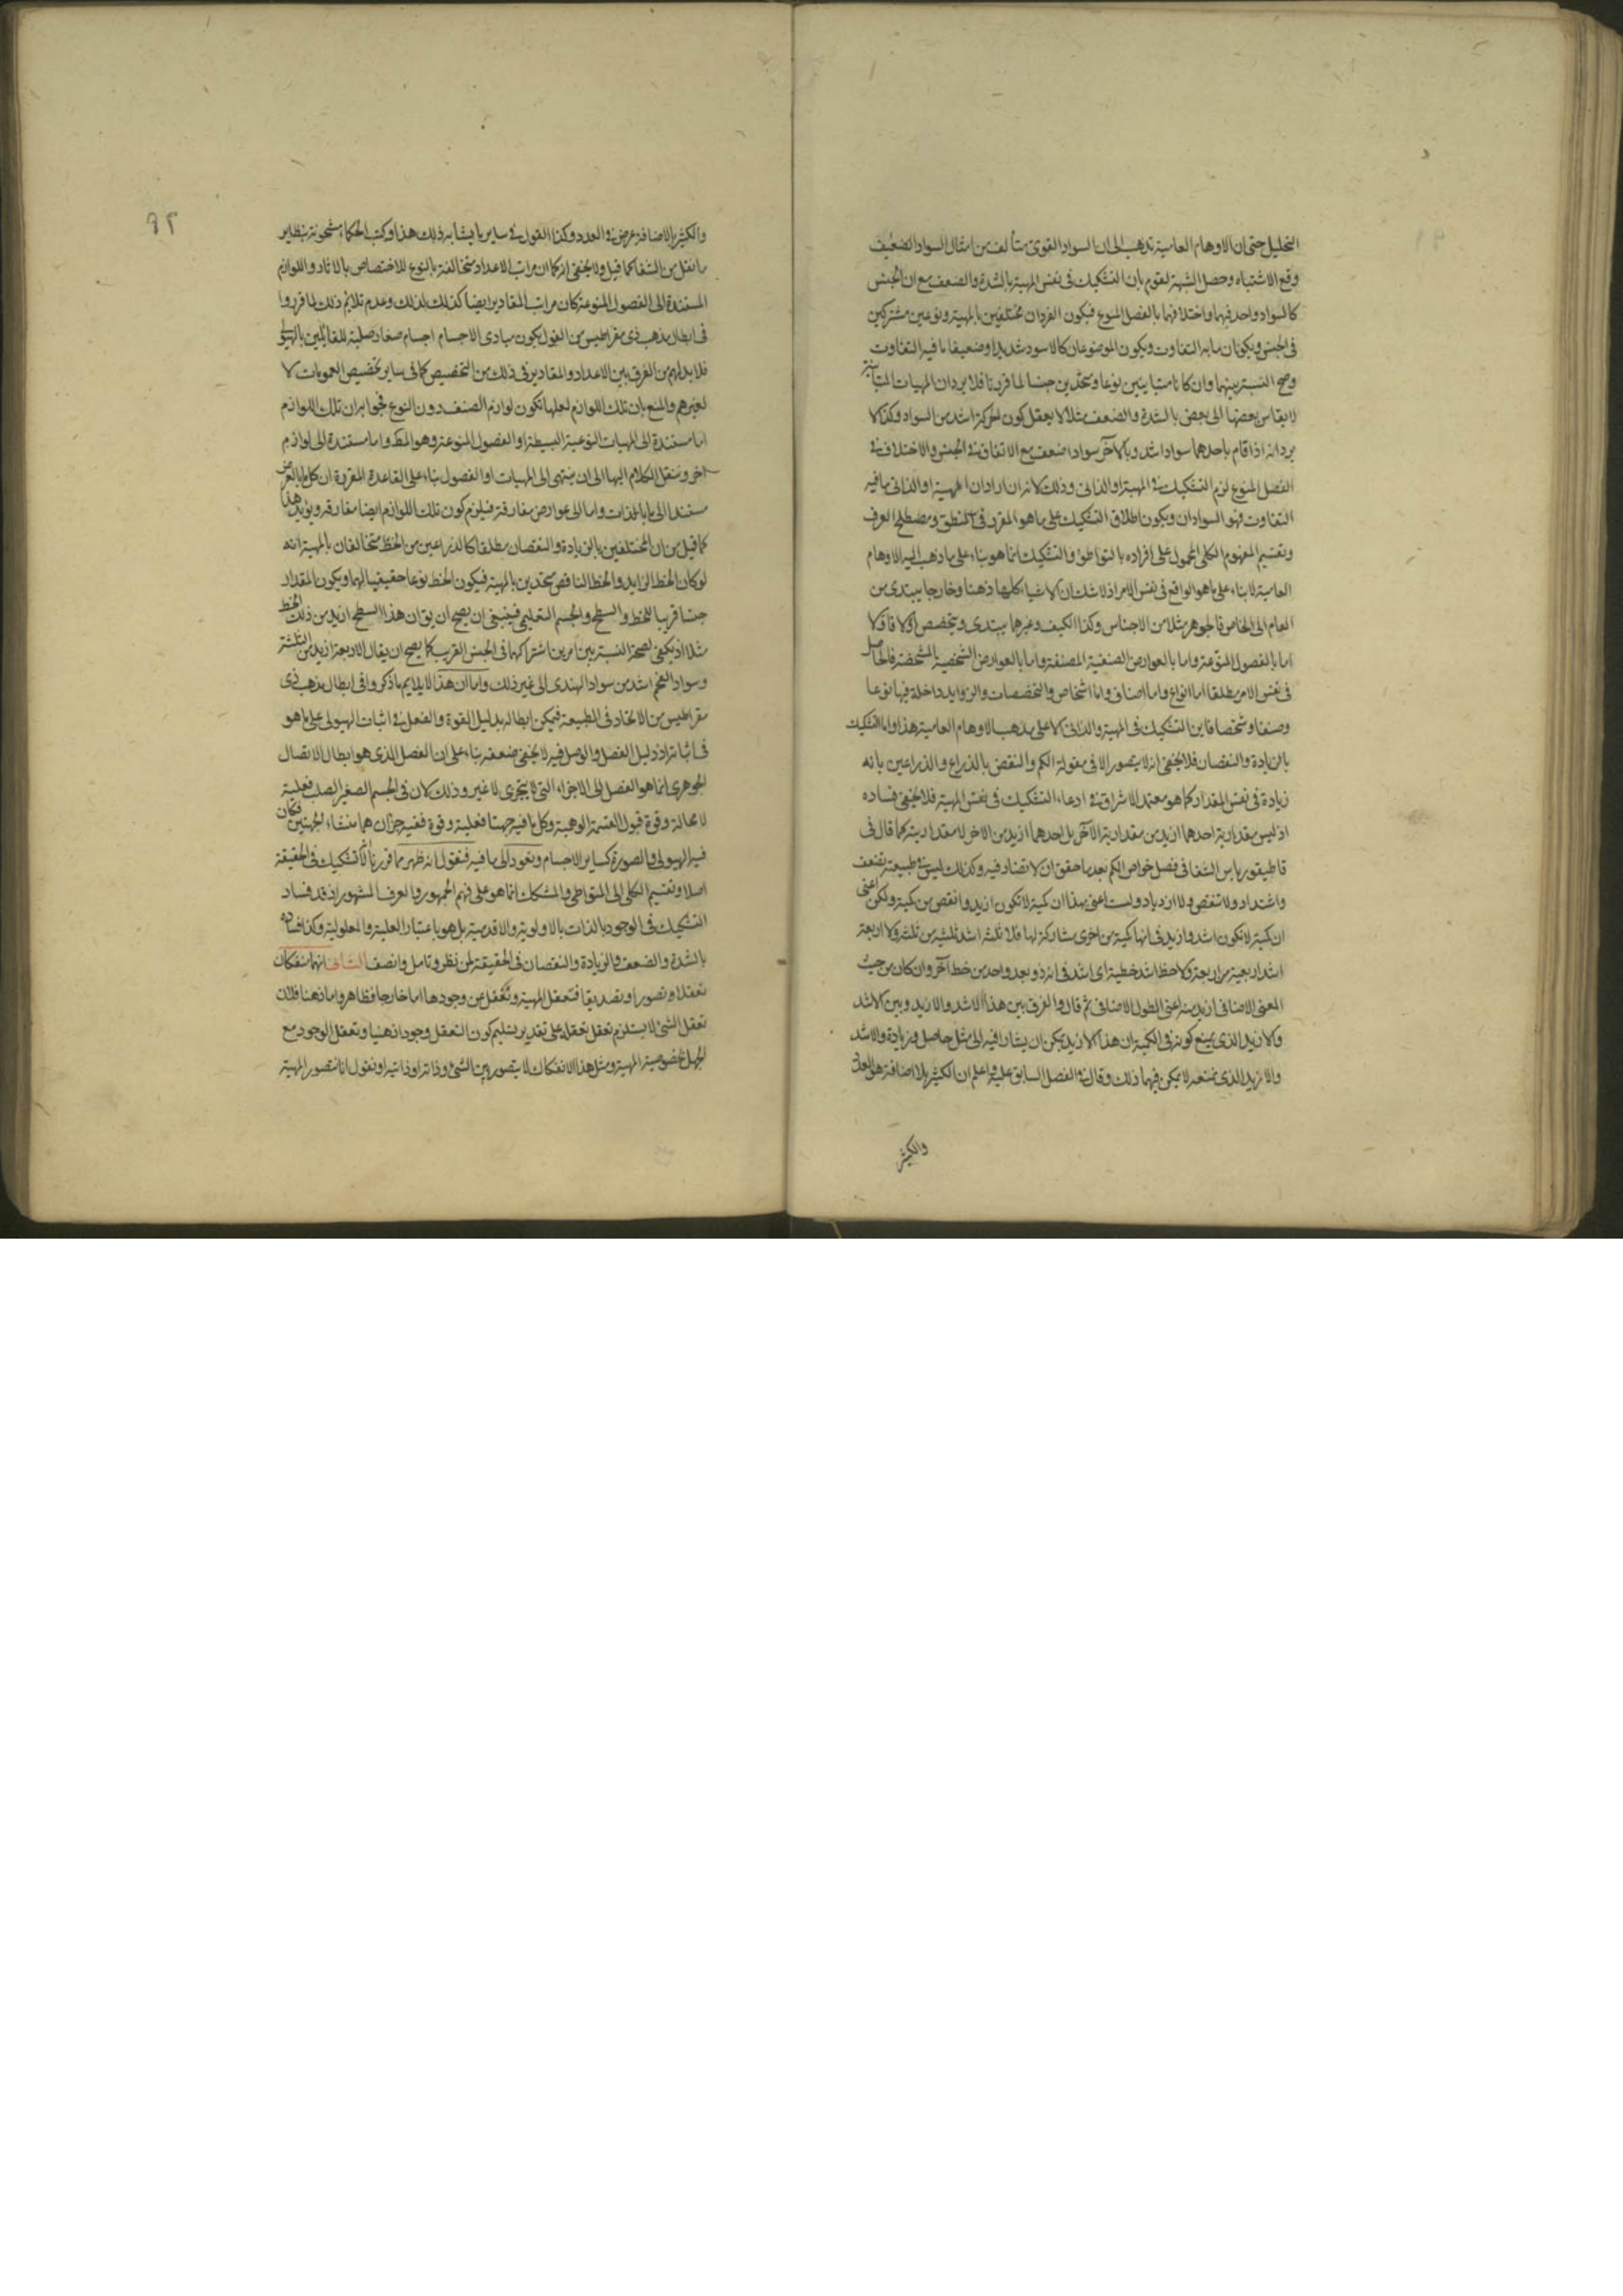 التحليل حتى ان الاوهام العامية تذهب الى ان السواد القوى يتألف من امثال السواد الضعيف
وقع الاشتباه وحصل الشبهة لقوم بان التشكيك فى نفس المهية بالشدة والضعف مع ان الجنس
كالسواد واحد فيهما واختلافهما بالفصل المنوع فيكون الفردان مختلفين بالمهية ونوعين مشتركين
فى الجنس ويكونان ما به التفاوت ويكون الموضوعان كالاسود شديدا وضعيفا ما فيه التفاوت
وصح النسبة بينهما وان كانا متباينين نوعا ومتحدين جنسا لما قررنا فلا يرد ان المهيات المتباينة
لا يقاس بعضها الى بعض بالشدة والضعف مثلا لا يعقل كون الحركة اشد من السواد وكذا لا
يرد انه اذا قام باحدهما سواد اشد وبالآخر سواد اضعف مع الاتفاق فى الجنس والاختلاف فى
الفصل المنوع لزم التشكيك فى المهية او الذاتى وذلك لانه ان اراد ان المهية او الذاتى ما فيه
التفاوت فهو السوادان ويكون اطلاق التشكيك على ما هو المقرر فى المنطق ومصطلح العرف
وتقسيم المفهوم الكلى المحمول على افراده بالتواطؤ والتشكيك انما هو بناء على ما ذهب اليه الاوهام
العامية لا بناء على ما هو الواقع فى نفس الامر اذ لا شك ان الاشياء كلها ذهنا وخارجا يبتدى من
العام الى الخاص فالجوهر مثلا من الاجناس وكذا الكيف وغيرها يبتدى ويتخصص اولا فاولا
اما بالفصول المنوعة واما بالعوارض الصنفية المصنفة واما بالعوارض الشخصية المشخصة فالحاصل
فى نفس الامر مطلقا اما انواع واما اصناف واما اشخاص والتخصصات والزوايد داخلة فيها نوعا
وصنفا وشخصا فاين التشكيك فى المهية والذاتى الا على مذهب الاوهام العامية هذا واما التشكيك
بالزيادة والنقصان فلا يخفى انه لا يتصور الا فى مقولة الكم والنقض بالذراع والذراعين بانه
زيادة فى نفس المقدار كما هو معتمد الاشراق فى ادعاء التشكيك فى نفس المهية فلا يخفى فساده
اذ ليس مقدارية احدهما ازيد من مقدارية الآخر بل احدهما ازيد من الاخر لا مقداريته كما قال فى
قاطيقورياس الشفا فى فصل خواص الكم بعد ما حقق ان لا تضاد فيه وكذلك ليس فى طبيعته تضعف
واشتداد ولا تنقص ولا ازدياد ولست اعنى بهذا ان كمية لا تكون ازيد وانقص من كمية ولكن اعنى
ان كمية لا تكون اشد وازيد فى انها كمية من اخرى مشاركة لها فلا ثلثة اشد ثلثية من ثلثة ولا اربعة
اشد اربعية من اربعة ولا خط اشد خطية اى اشد فى انه ذو بعد واحد من خط آخر وان كان من حيث
المعنى الاضافى ازيد منه اعنى الطول الاضافى ثم قال والفرق بين هذا الاشد والازيد وبين الاشد
والازيد الذى يمنع كونه فى الكمية ان هذا الازيد يمكن ان يشار فيه الى مثل حاصل وزيادة والاشد
والازيد الذى نمنعه لا يمكن فيهما ذلك وقال فى الفصل السابق عليه واعلم ان الكثير بلا اضافة هو العدد
والكثير
٩٢
والكثير بالاضافة عرض فى العدد وكذا القول فى ساير ما يشابه ذلك هذا وكتب الحكماء مشحونة بنظاير
ما نقل من الشفا كما قيل ولا يخفى انه كما ان مراتب الاعداد متخالفة بالنوع للاختصاص بالاثار واللوازم
المستندة الى الفصول المنوعة كان مراتب المقادير ايضا كذلك لذلك وعدم تلائم ذلك لما قرروا
فى ابطال مذهب ذى مقراطيس من القول بكون مبادى الاجسام اجسام صغار صلبة للقائلين بالهيولى
فلا بد لهم من الفرق بين الاعداد والمقادير فى ذلك من التخصيص كما فى ساير تخصيص العمومات لا
لغيرهم والمنع بان تلك اللوازم لعلها تكون لوازم الصنف دون النوع فجوابه ان تلك اللوازم
اما مستندة الى المهيات النوعية البسيطة او الفصول المنوعة وهو المط واما مستندة الى لوازم
اخر وننقل الكلام اليها الى ان ينتهى الى المهيات او الفصول بناء على القاعدة المقررة ان كل ما بالعرض
مستند الى ما بالذات واما الى عوارض مفارقة فيلزم كون تلك اللوازم ايضا مفارقة ويؤيد هذا
كما قيل من ان المختلفين بالزيادة والنقصان مطلقا كالذراعين من الخط متخالفان بالمهية انه
لو كان الخط الزايد والخط الناقص متحدين بالمهية فيكون الخط نوعا حقيقيا لهما ويكون المقدار
جنسا قريبا للخط والسطح والجسم التعليمى فينبغى ان يصح ان يق ان هذا السطح ازيد من ذلك الخط
مثلا اذ يكفى لصحة النسبة بين امرين اشتراكهما فى الجنس القريب كما يصح ان يقال الاربعة ازيد من الثلثة
وسواد الفحم اشد من سواد الهندى الى غير ذلك واما ان هذا لا يلايم ما ذكروا فى ابطال مذهب ذى
مقراطيس من الاتحاد فى الطبيعة فيمكن ابطاله بدليل القوة والفعل فى اثبات الهيولى على ما هو
فى اثباته اذ دليل الفصل والوصل فيه لا يخفى ضعفه بناء على ان الفصل الذى هو ابطال الاتصال
الجوهرى انما هو الفصل الى الاجزاء التى لا يتجزى لا غير وذلك لان فى الجسم الصغير الصلب فعلية
لا محالة وقوة قبول القسمة الوهمية وكل ما فيه جهتا فعلية وقوة ففيه جزآن هما منشاء الجهتين فكان
فيه الهيولى والصورة كساير الاجسام ونعود الى ما فيه فنقول انه ظهر مما قررنا ان لا تشكيك فى الحقيقة
اصلا وتقسيم الكلى الى المتواطى والمشكك انما هو على فهم الجمهور والعرف المشهور اذ قد فساد
التشكيك فى الوجود بالذات بالاولوية والاقدمية بل هو باعتبار العلية والمعلولية وكذا فساده
بالشدة والضعف والزيادة والنقصان فى الحقيقة لمن نظر وتامل وانصف الثانى انهما منفكان
تعقلا وتصورا وتصديقا فتعقل المهية ونغفل عن وجودها اما خارجا فظاهر واما ذهنا فلان
تعقل الشئ لا يستلزم تعقل تعقله على تقدير تسليم كون التعقل وجودا ذهنيا وتعقل الوجود مع
الجهل بخصوصية المهية ومثل هذا الانفكاك لا يتصور بين الشئ وذاته او ذاتيه او نقول انا نتصور المهية